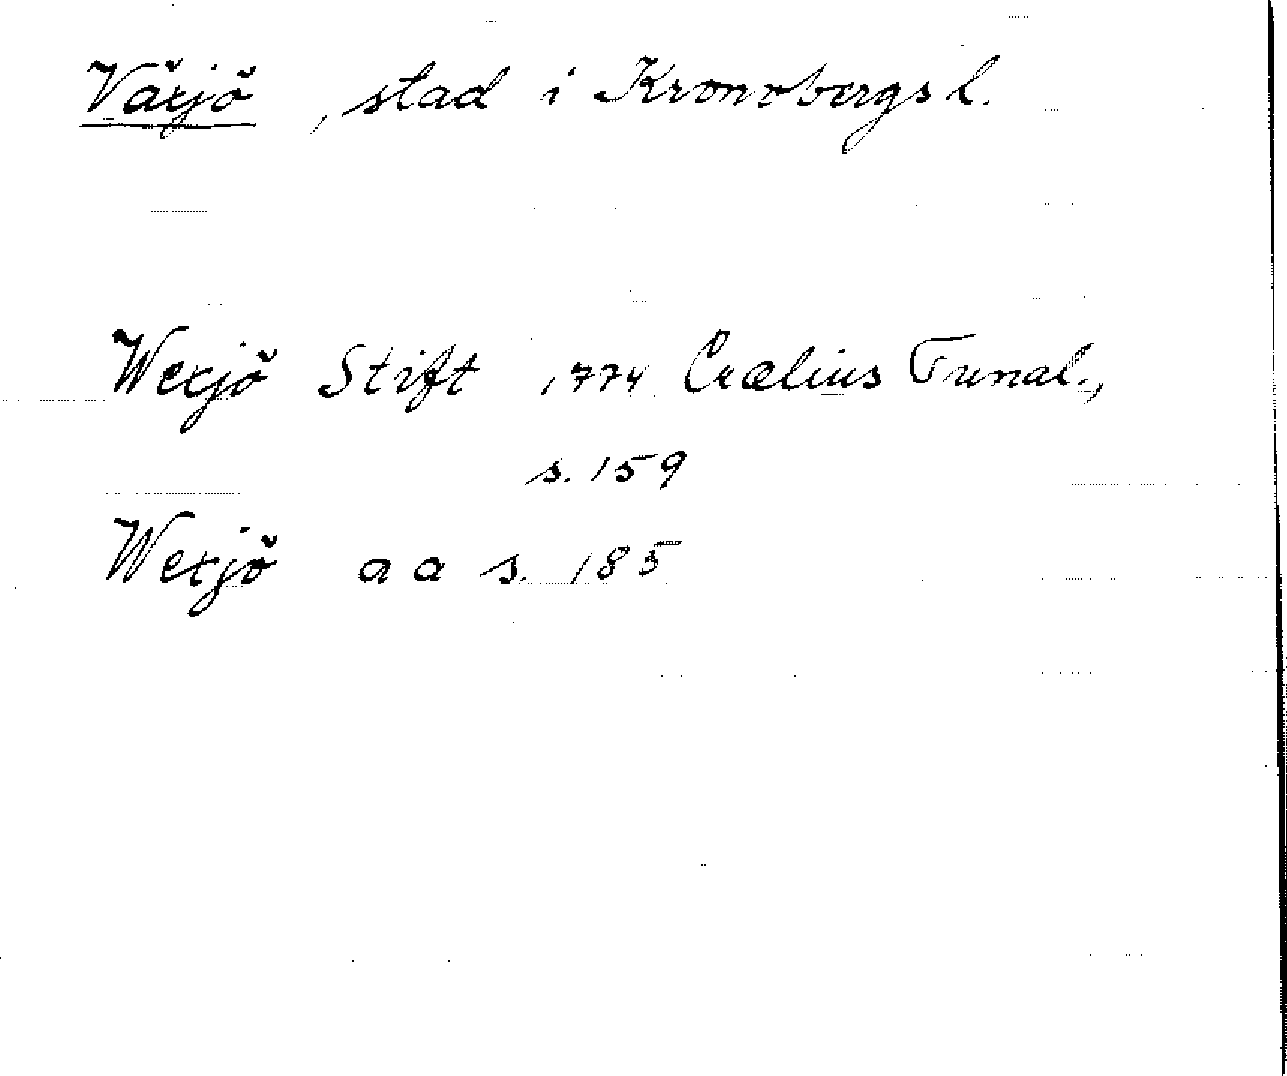 Växjö, stad i Kronobergs l.
Wexjö Stift 1774 Crælius Tunal.,
s. 159
Wexjö a a s. 185